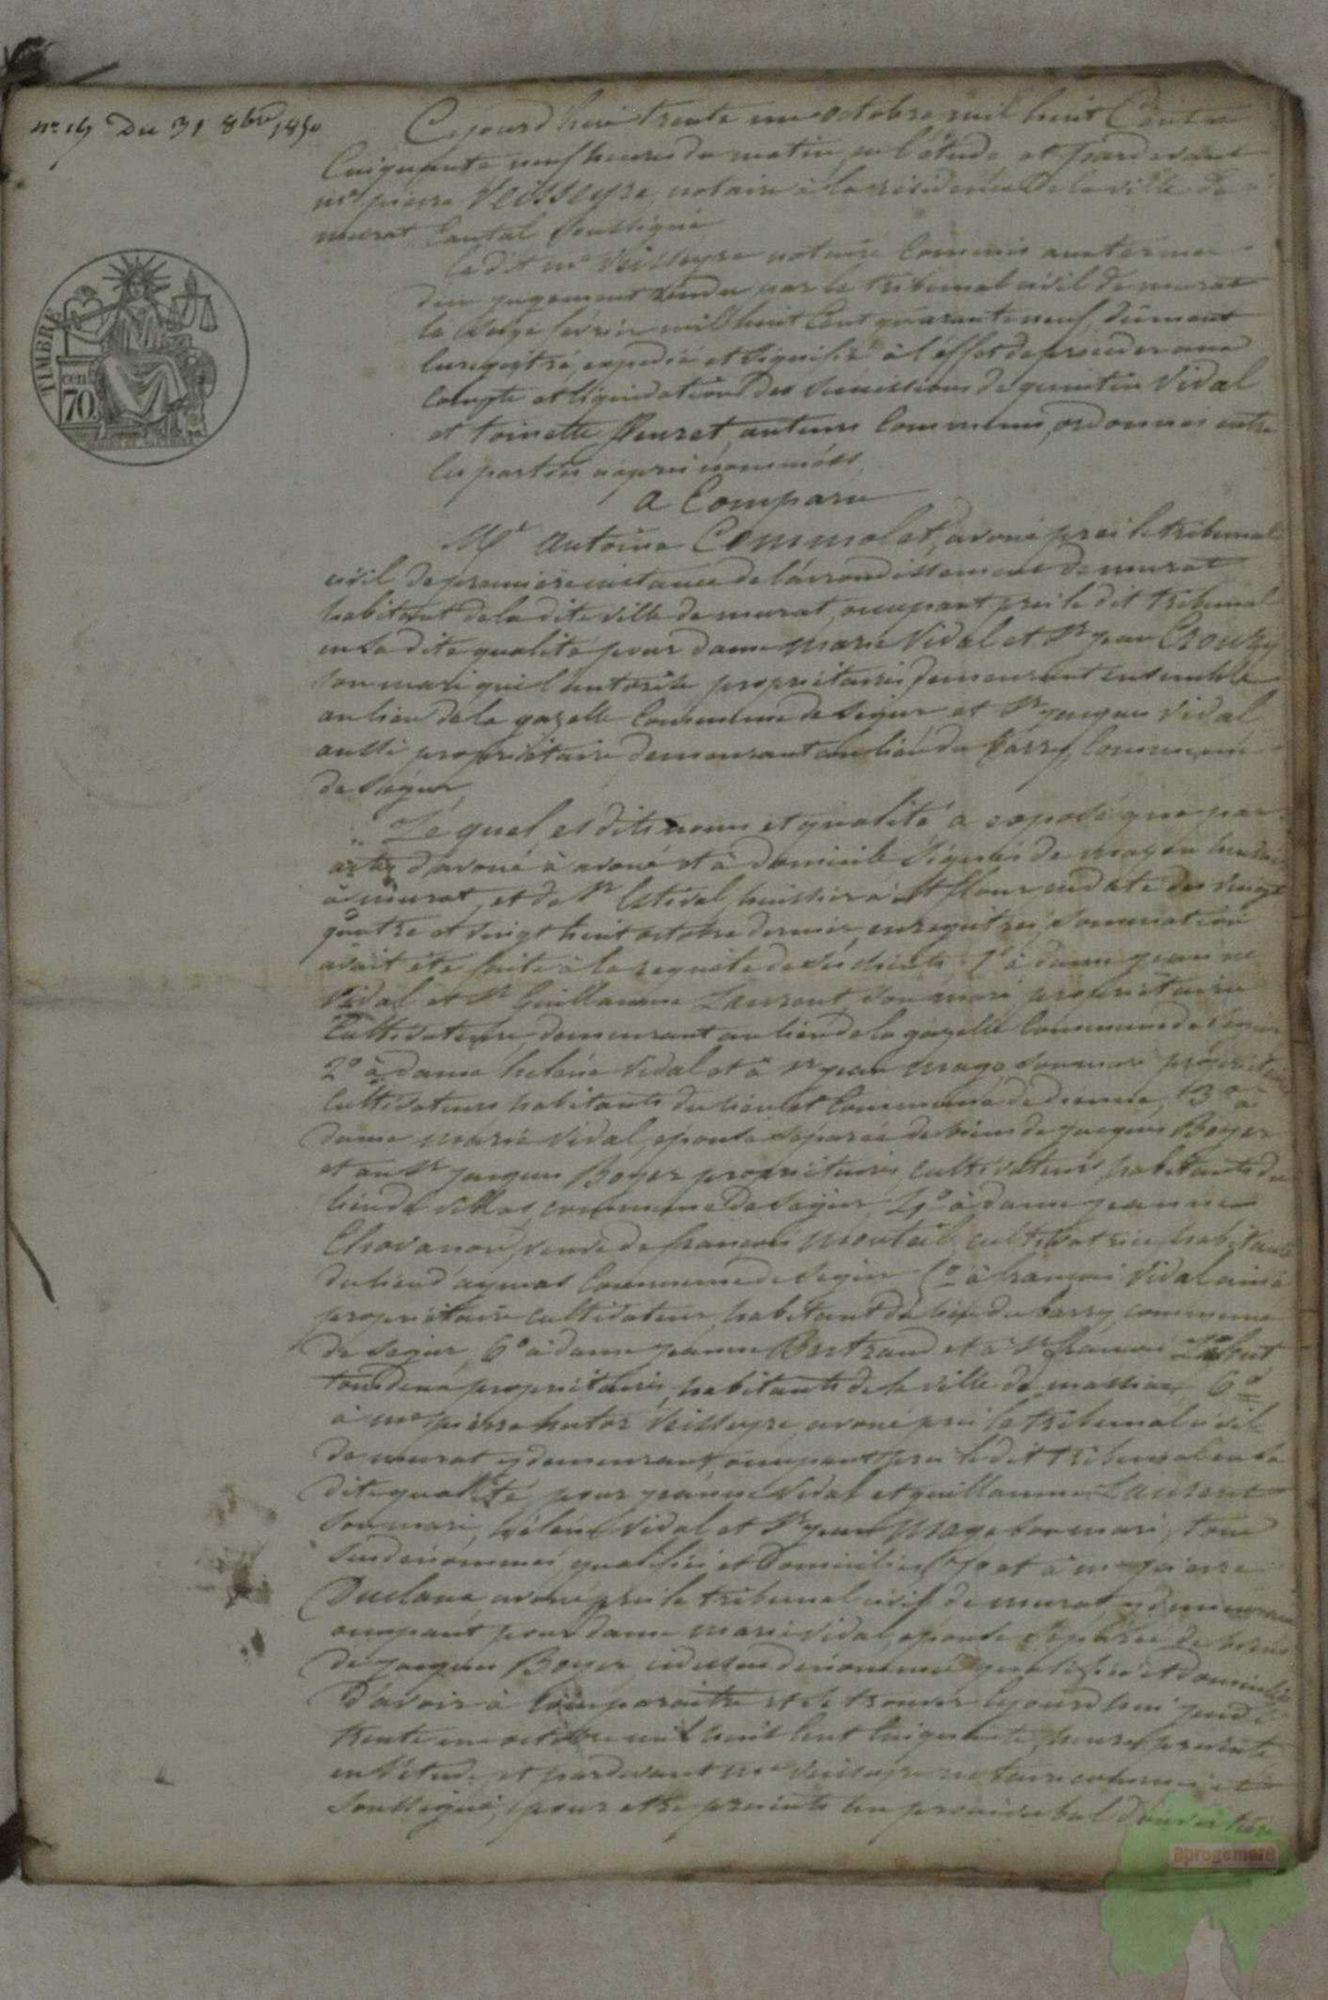 nº 19 Du 31 8bre 1850
TIMBRE
cen
70
Cejourd'hui trente un octobre mil huit Cent
Cinquante, neuf heures du matin, en l'étude et pardevant
me pierre Veisseyre, notaire à la résidence de la ville de
murat Cantal soussigné
Ledit me Veisseyre notaire Commis aux termes
d'un jugement rendu par le tribunal civil de murat
le seize février mil huit Cent quarante neuf, dûment
Enregistré, expedié et signifié à l'effet de proceder aux
Compte et liquidation des successions de quintin Vidal
et toinette fleuret, auteurs Communs, ordonnés entre
les parties cy après nommées,
a Comparu
Me Antoine Commolet, avoué près le tribunal
civil de première instance de l'arrondissement de murat
habitant de la dite ville de murat, occupant près le dit tribunal
en sa dite qualité pour dame marie Vidal et Sr jean Crouzy
son mari qui l'autorise propriétaires demeurant ensemble
au lieu de la gazelle Commune de Segur et Sr jacques Vidal
aussi propriétaire demeurant au lieu du barry, Commune
de Segur,
Lequel es dits noms et qualité a exposé que par
actes d'avoué à avoué et à domicile signés de huissier
à murat, et de Sr Estival huissier à St flour en date des vingt
quatre et vingt huit octobre dernier, enregistrés sommation
avait été faite à la requête de ses clients 1º à dame jeanne
Vidal et Sr Guillaume Laurent, son mari, propriétaires
Cultivateurs, demeurant au lieu de la gazelle Commune de Segur
2º à dame helène Vidal et à Sr jean mage son mari propriétaires
Cultivateurs habitants du lieu et Commune de dienne, 3º à
dame marie Vidal, épouse séparée de biens de jacques Boyer
et au Sr jacques Boyer propriétaires, cultivateurs habitants du
lieu de commune de Segur, 4º à dame jeanne
Chavanon, veuve de françois cultivatrice, habitante
du lieu d'aymas Commune de Segur 5º à françois Vidal ainé
propriétaire cultivateur, habitant du lieu du barry, commune
de Segur, 6º à dame jeanne Bertrand et à Sr françois
tous deux propriétaires, habitants de la ville de massiac 6º
à me pierre Veisseyre, avoué près le tribunal civil
de murat y demeurant, occupant près le dit tribunal en sa
dite qualité, pour jeanne Vidal et guillaume Laurent
son mari, hélène Vidal et Sr jean Mage son mari, tous
susdénommés, qualifiés et Domiciliés, 7º et à me pierre
Duclaux, avoué près le tribunal civil de murat y demeurant
occupant pour dame marie Vidal, épouse séparée de biens
de jacques Boyer, ci dessus dénommé qualifié et domicilié
D'avoir à Comparaitre et se trouver Cejourd'hui jeudi
trente un octobre mil huit Cent Cinquante, heure présente
en l'étude et pardevant me Veisseyre notaire commis et
soussigné, pour être présents au procès verbal d'ouverture
aprogemere